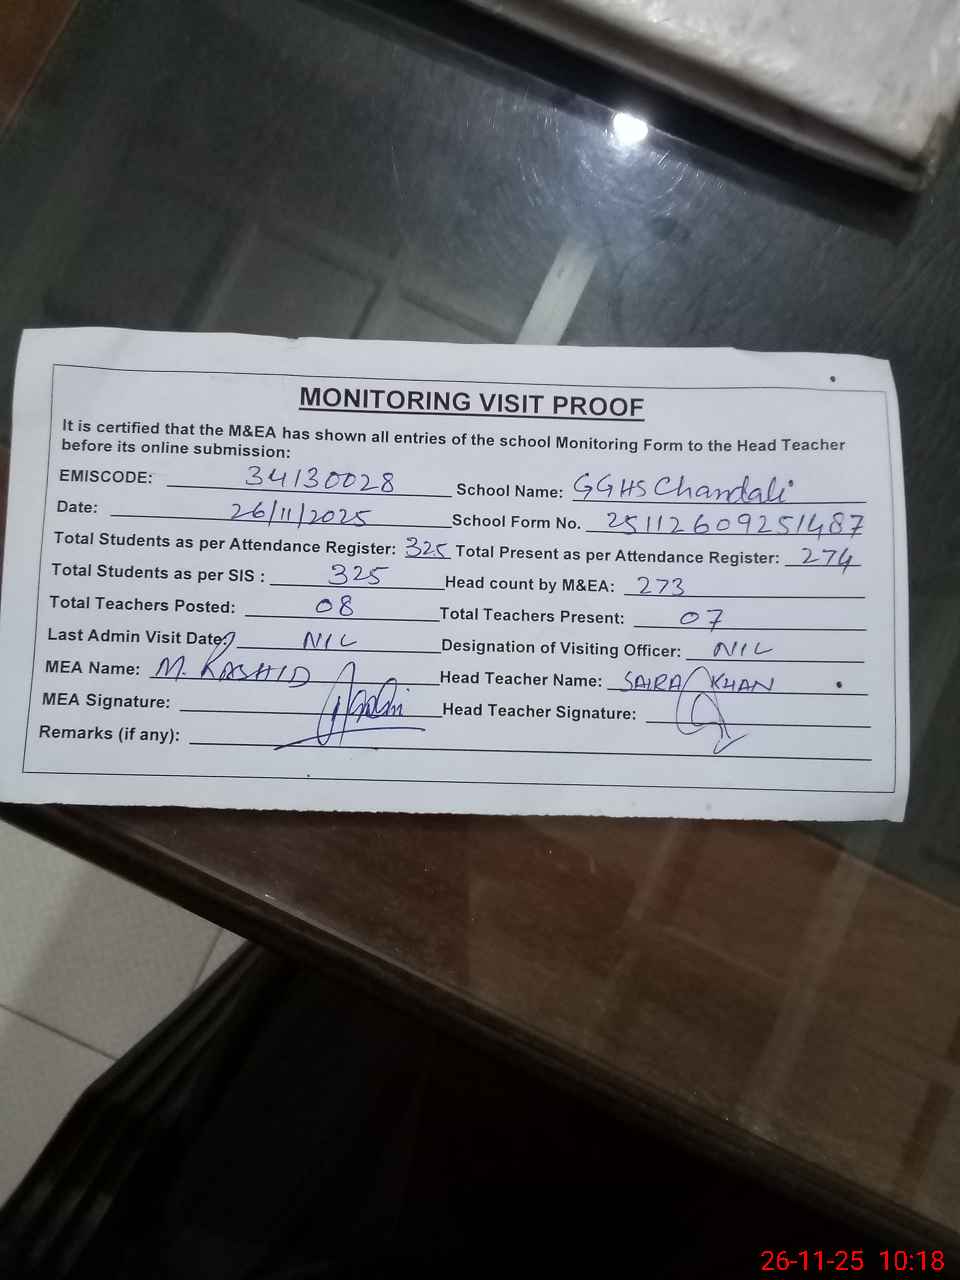 MONITORING VISIT PROOF
It is certified that the M&EA has shown all entries of the school Monitoring Form to the Head Teacher
before its online submission:
EMISCODE: 34130028 School Name: GGHS Chandali
Date: 26/11/2025 School Form No. 25112609251487
Total Students as per Attendance Register: 325 Total Present as per Attendance Register: 274
Total Students as per SIS : 325 Head count by M&EA: 273
Total Teachers Posted: 08 Total Teachers Present: 07
Last Admin Visit Date: NIL Designation of Visiting Officer: NIL
MEA Name: M. RASHID Head Teacher Name: SAIRA KHAN
MEA Signature: Head Teacher Signature:
Remarks (if any):
26-11-25 10:18